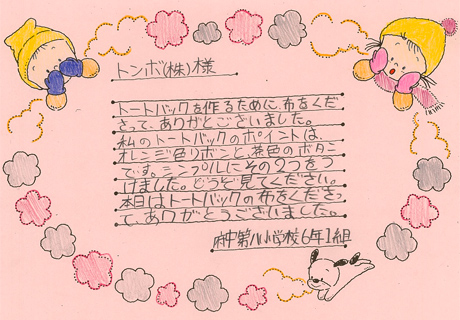 トンボ(株)様
トートバックを作るために、布をくだ
さって、ありがとございました。
私のトートバックのポイントは、
オレンジ色リボンと、茶色のボタン
です。シンプルにその2つをつ
けました。どうぞ見てください。
本日はトートバックの布をくださっ
て、ありがとうございました。
府中第八小学校6年1組